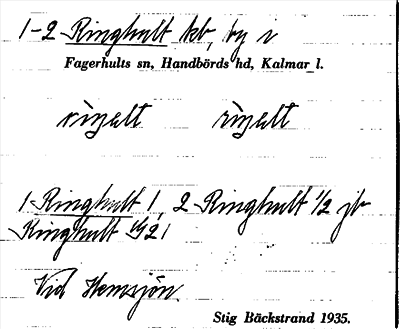 1-2 Ringhult kb, by i
Fagerhults sn, Handbörds hd, Kalmar l.
riŋalt riŋalt
1 Ringhult 1, 2 Ringhult 1/2 jb
Ringhult 1921
Vid Hemsjön.
Stig Bäckstrand 1935.